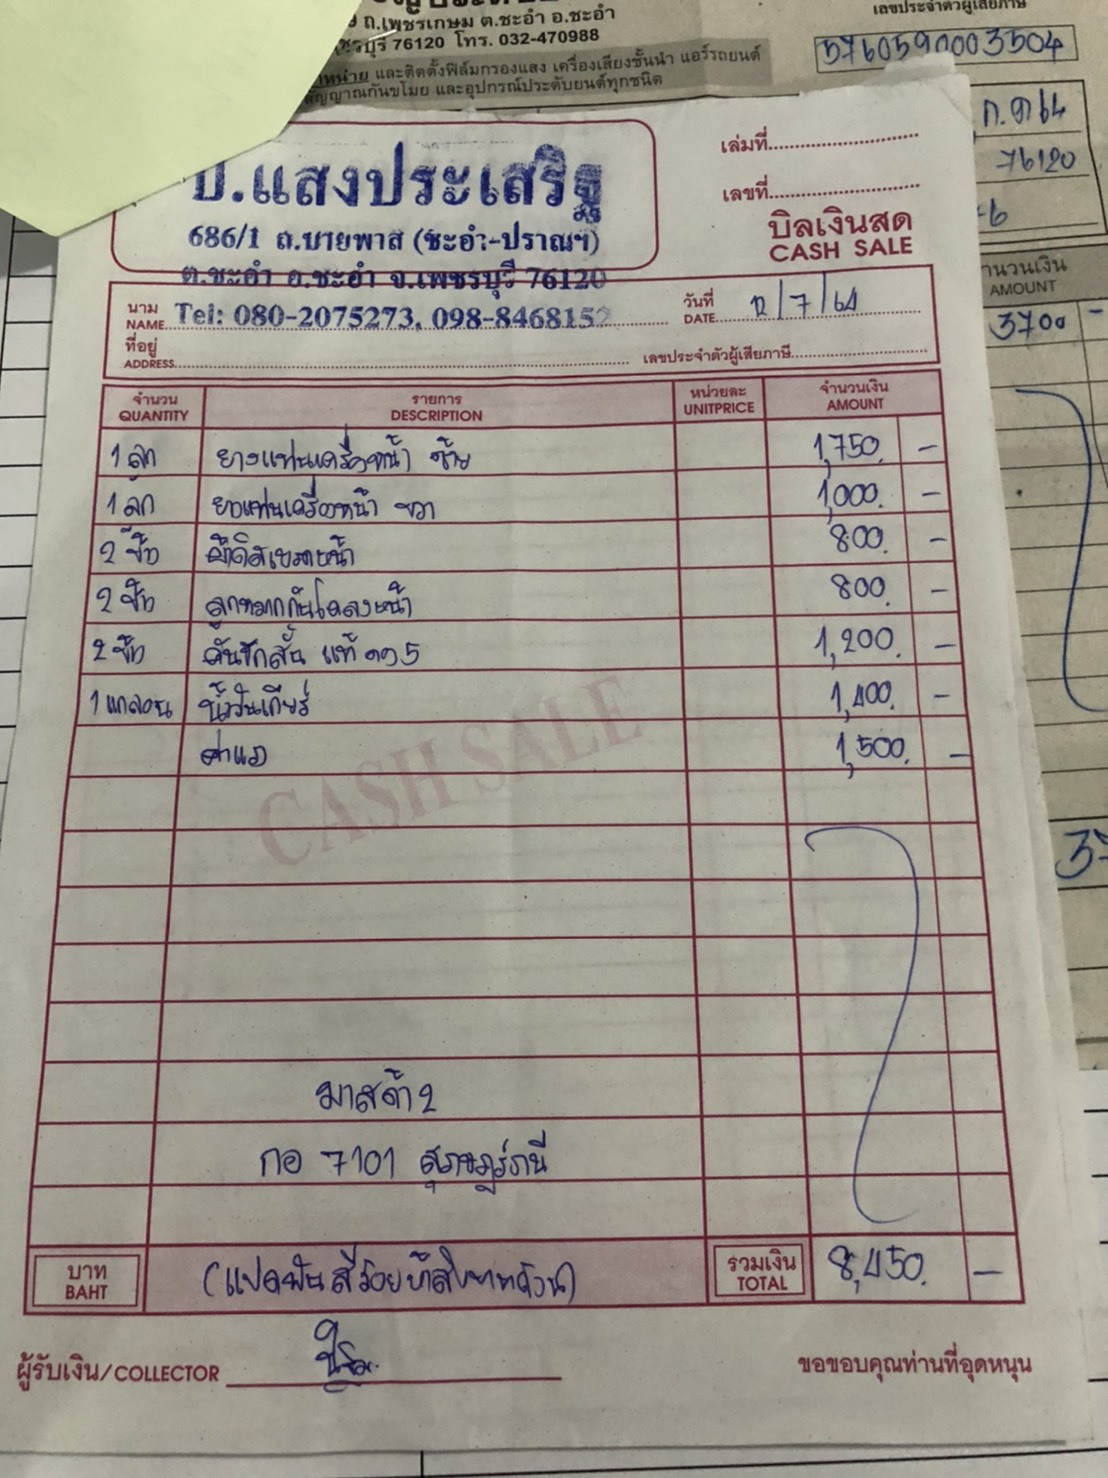 9 ถ.เพชรเกษม ต.ชะอำ อ.ชะอำ
ชรบุรี 76120 โทร. 032-470988
หน่าย และติดตั้งฟิล์มกรองแสง เครื่องเสียงชั้นนำ แอร์รถยนต์
สัญญาณกันขโมย และอุปกรณ์ประดับยนต์ทุกชนิด
เลขประจำตัวผู้เสียภาษี
5760590003504
76120
จำนวนเงิน
AMOUNT
3700 -
ป.แสงประเสริฐ
686/1 ถ.บายพาส (ชะอำ-ปราณฯ)
ต.ชะอำ อ.ชะอำ จ.เพชรบุรี 76120
Tel: 080-2075273, 098-8468152
เล่มที่
เลขที่
บิลเงินสด
CASH SALE
นาม
NAME
วันที่
DATE 12/7/64
ที่อยู่
ADDRESS
เลขประจำตัวผู้เสียภาษี
จำนวน รายการ หน่วยละ จำนวนเงิน
QUANTITY DESCRIPTION UNITPRICE AMOUNT
1 ลูก ยางแท่นเครื่องหน้า ซ้าย 1,750 -
1 ลูก ยางแท่นเครื่องหน้า ขวา 1,000 -
2 ข้าง ผ้าดิสเบรคหน้า 800 -
2 ข้าง ลูกหมากกันโคลงหน้า 800 -
2 ข้าง คันชักสั้น แท้ 1,200 -
1 แกลอน น้ำมันเกียร์ 1,400 -
ค่าแรง 1,500 -
CASH SALE
มาสด้า 2
กอ 7101 สุราษฎร์ธานี
บาท
BAHT
(แปดพันสี่ร้อยห้าสิบบาทถ้วน)
รวมเงิน
TOTAL
8,450 -
ผู้รับเงิน/COLLECTOR
ขอขอบคุณท่านที่อุดหนุน